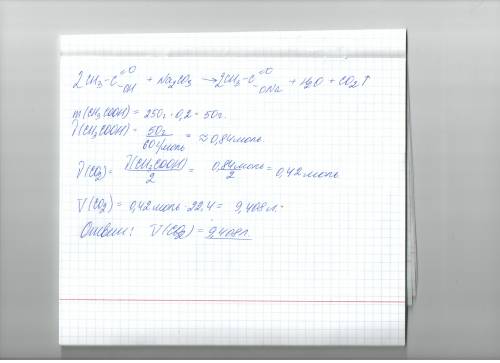 2CH₃-C(=O)-OH + Na₂CO₃ → 2CH₃-C(=O)-ONa + H₂O + CO₂↑
m(CH₃COOH) = 250г · 0,2 = 50г.
ν(CH₃COOH) = 50г / 60г/моль = ≈ 0,84моль.
ν(CO₂) = ν(CH₃COOH) / 2 = 0,84моль / 2 = 0,42моль
V(CO₂) = 0,42моль · 22,4 = 9,408л.
Ответ: V(CO₂) = 9,408л.